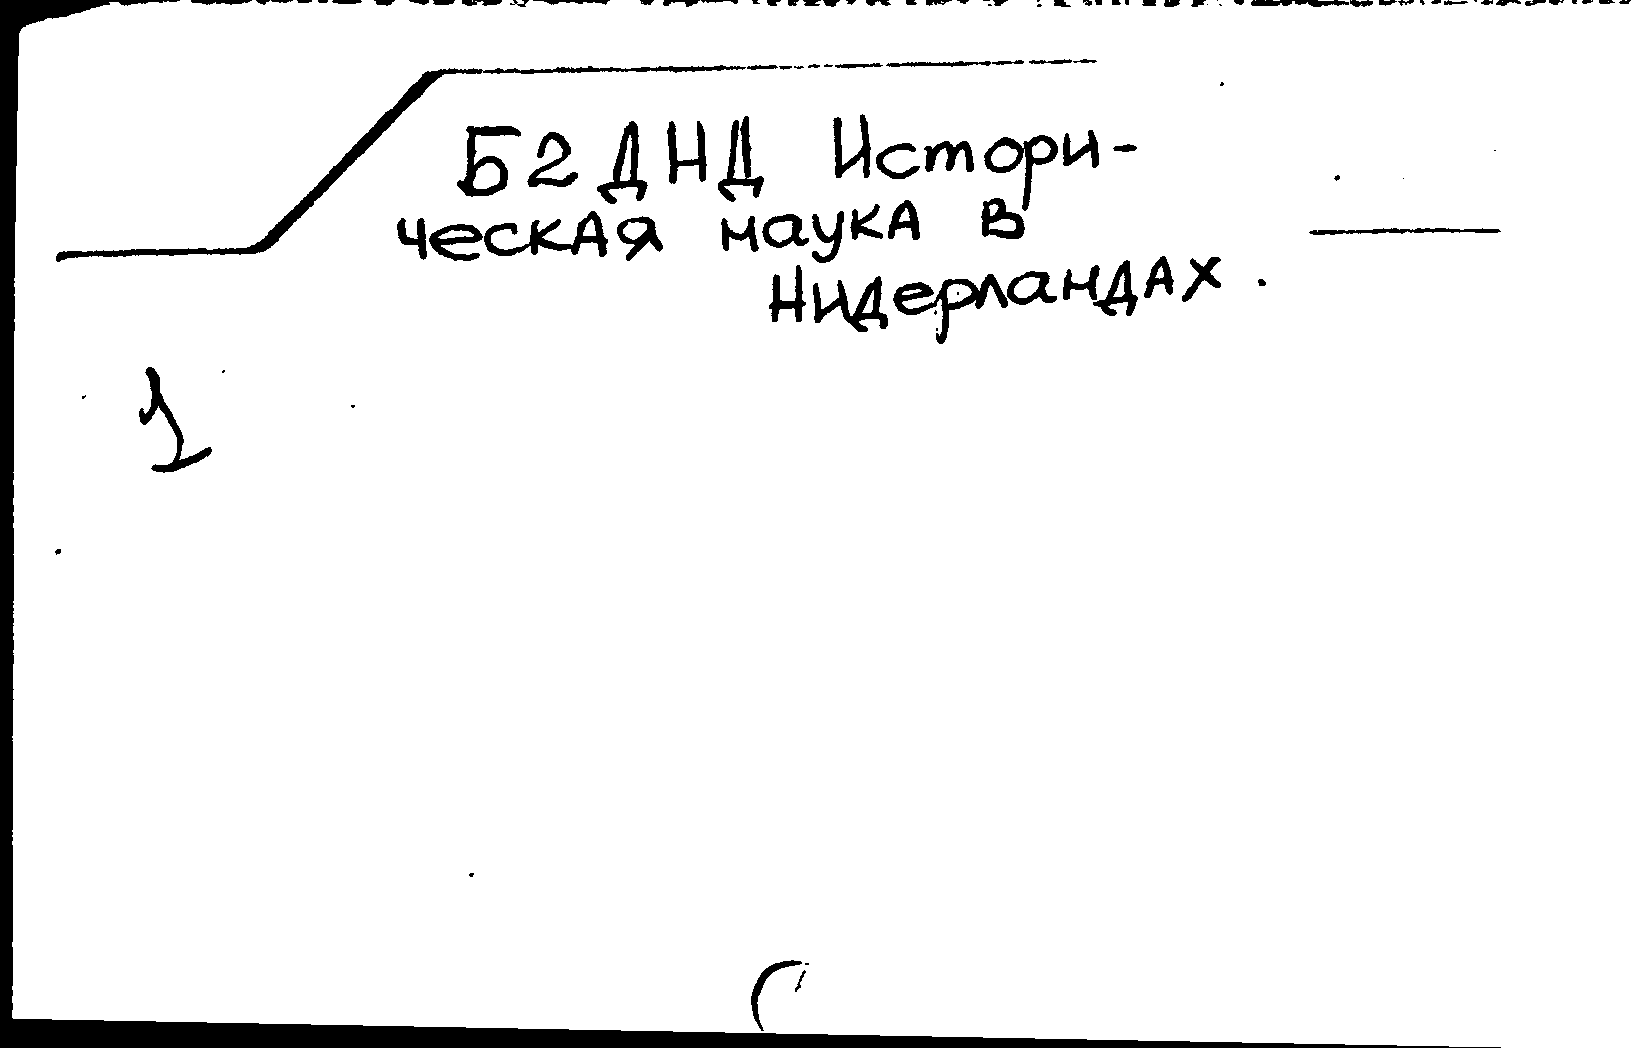 Б2ДНД Истори-
ческая наука в
Нидерландах.
1